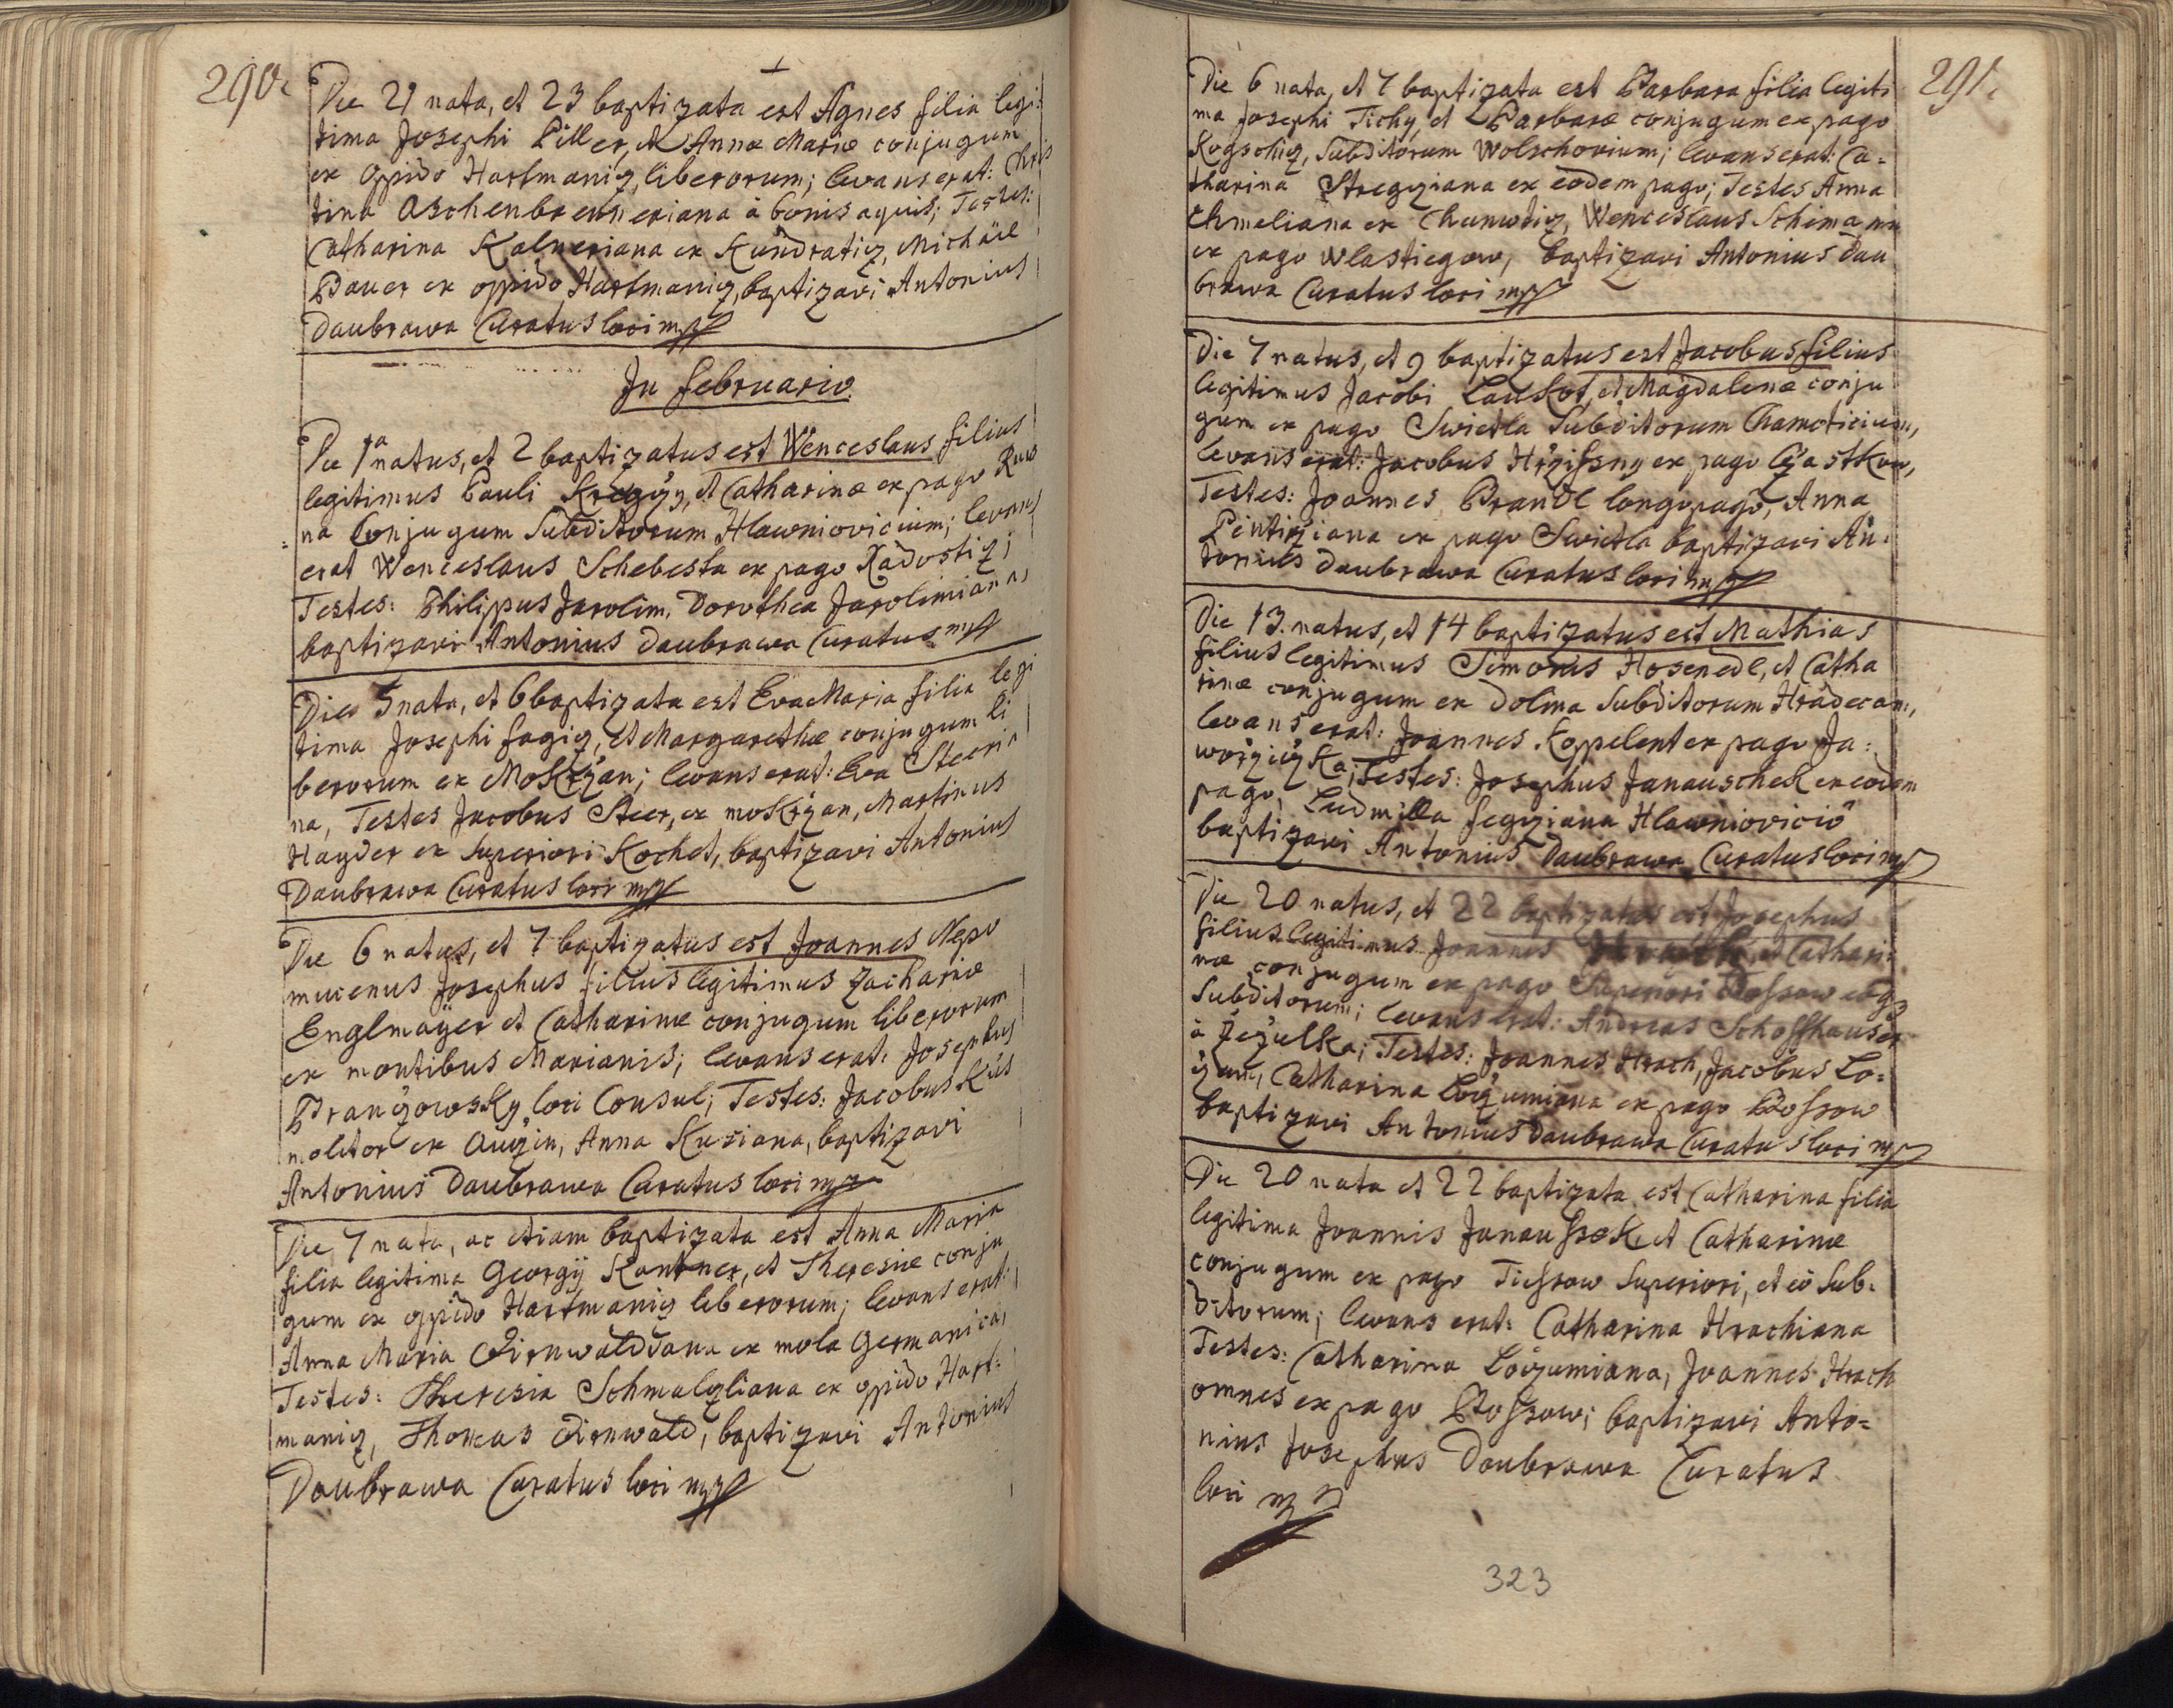 290.
Die 21 nata, et 23 baptizata est Agnes filia legi:
tima Josephi Piller, et Annæ Mariæ conjugum
ex oppido Hartmaniz, liberorum; levans erat: Chris
tina Aschenbrenneriana à bonis aquis; Testes:
Catharina Kalneriana ex Kundratiz, Michäel
Bauer ex oppido Hartmaniz, baptizavi Antonius
Daubrawa Curatus loci mp
In Februario.
Die 1a natus, et 2 baptizatus est Wenceslaus filius
legitimus Pauli, et Catharinæ ex pago Ruw
na Conjugum Subditorum Hlawniovicium; levans
erat Wenceslaus Schebesta ex pago Radostiz;
Testes: Philippus Jarolim, Dorothea Jarolimiana,
baptizavi Antonius Daubrawa Curatus mp
Die 5 nata, et 6 baptizata est Eva Maria filia legi
tima Josephi Fagiz, et Margarethæ conjugum li
berorum ex Mokržan; levans erat: Eva Steeria
na, Testes Jacobus Steer, ex mokržan, Martinus
Hayder ex Superiori Kochet, baptizavi Antonius
Daubrawa Curatus loci mp
Die 6 natus, et 7 baptizatus est Joannes Nepo
mucenus Josephus filius legitimus Zachariæ
Englmaÿer et Catharinæ conjugum liberorum
ex montibus Marianis; levans erat: Josephus
Pranžowsky loci Consul; Testes: Jacobus Kus
molitor ex Augzin, Anna Kusiana, baptizavi
Antonius Daubrawa Curatus loci mp
Die 7 nata, ac etiam baptizata est Anna Maria
filia legitima Georgij Kantner, et Theresiæ conju
gum ex oppido Hartmaniz liberorum; levans erat:
Anna Maria Dirnwaldiana ex mola Germanica,
Testes: Theresia Schmalzliana ex oppido Hart:
maniz, Thomas Dirnwald, baptizavi Antonius
Daubrawa Curatus loci mp
291.
Die 6 nata, et 7 baptizata est Barbara filia legiti
ma Josephi Tichy, et Barbaræ conjugum ex pago
Kogschiz, Subditorum Wolschovium; levans erat: Ca=
tharina Stregziana ex eodem pago; Testes Anna
Chmeliana ex Chamutiz, Wenceslaus Schimann
ex pago Wlastiegow, baptizavi Antonius Dau
brawa Curatus loci mp
Die 7 natus, et 9 baptizatus est Jacobus filius
legitimus Jacobi Lauskot, et Magdalenæ conju
gum ex pago Swietla Subditorum Chamoticium,
levans erat: Jacobus Hržissny ex pago Cžastkow,
Testes: Joannes Brandl longopago, Anna
Pintiržiana ex pago Swietla baptizavi An:
tonius Daubrawa Curatus loci mp
Die 13. natus, et 14 baptizatus est Mathias
filius legitimus Simonis Hosenedl, et Catha
rinæ conjugum ex Dolina Subditorum Hradecam,
levans erat: Joannes Koppelent ex pago Ja:
woržiczka; Testes: Josephus Janauschek ex eodem
pago, Ludmilla Fegziana Hlawniovicio
baptizavi Antonius Daubrawa Curatus loci mp
Die 20 natus, et 22 baptizatus est Josephus
filius legitimus Joannes, et Cathari:
næ conjugum ex pago Superiori Tiessow
Subditorum; levans erat: Andreas Schoffhauser
à Žežulka; Testes: Joannes Hrach, Jacobus Lo=
izum, Catharina Loizumiana ex pago Bossow
baptizavi Antonius Daubrawa Curatus loci mp
Die 20 nata et 22 baptizata est Catharina filia
legitima Joannis Janaussek, et Catharinæ
conjugum ex pago Tiessow Superiori, et eò Sub=
ditorum; levans erat: Catharina Hrachiana
Testes: Catharina Loizumiana, Joannes Hrach
omnes ex pago Bossow; baptizavi Anto=
nius Josephus Daubrawa Curatus
loci mp
323